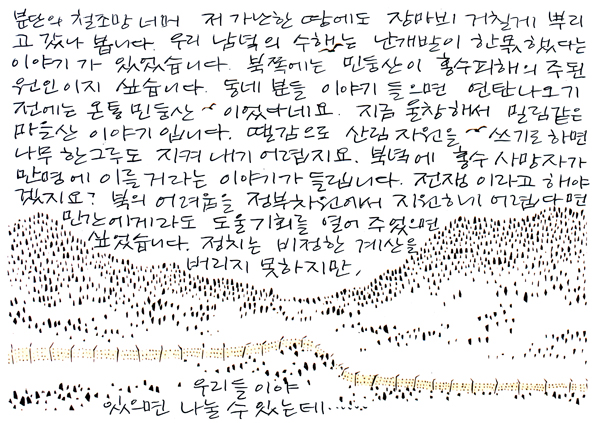 분단의 철조망 너머 저 가난한 땅에도 장마비 거칠게 뿌리
고 갔나 봅니다. 우리 남녘의 수해는 난개발이 한몫 했다는
이야기가 있었습니다. 북쪽에는 민둥산이 홍수피해의 주된
원인이지 싶습니다. 동네 분들 이야기 들으면 연탄나오기
전에는 온통 민둥산이었다네요. 지금 울창해서 밀림같은
마을산 이야기입니다. 땔감으로 산림자원을 쓰기로 하면
나무 한그루도 지켜 내기 어렵지요. 북녘에 홍수 사망자가
만명에 이를거라는 이야기가 들립니다. 전쟁이라고 해야
겠지요? 북의 어려움을 정부차원에서 지원하기 어렵다면
민간에게라도 도울기회를 열어 주었으면
싶었습니다. 정치는 비정한 계산을
버리지 못하지만,
우리들이야
있으면 나눌 수 있는데......